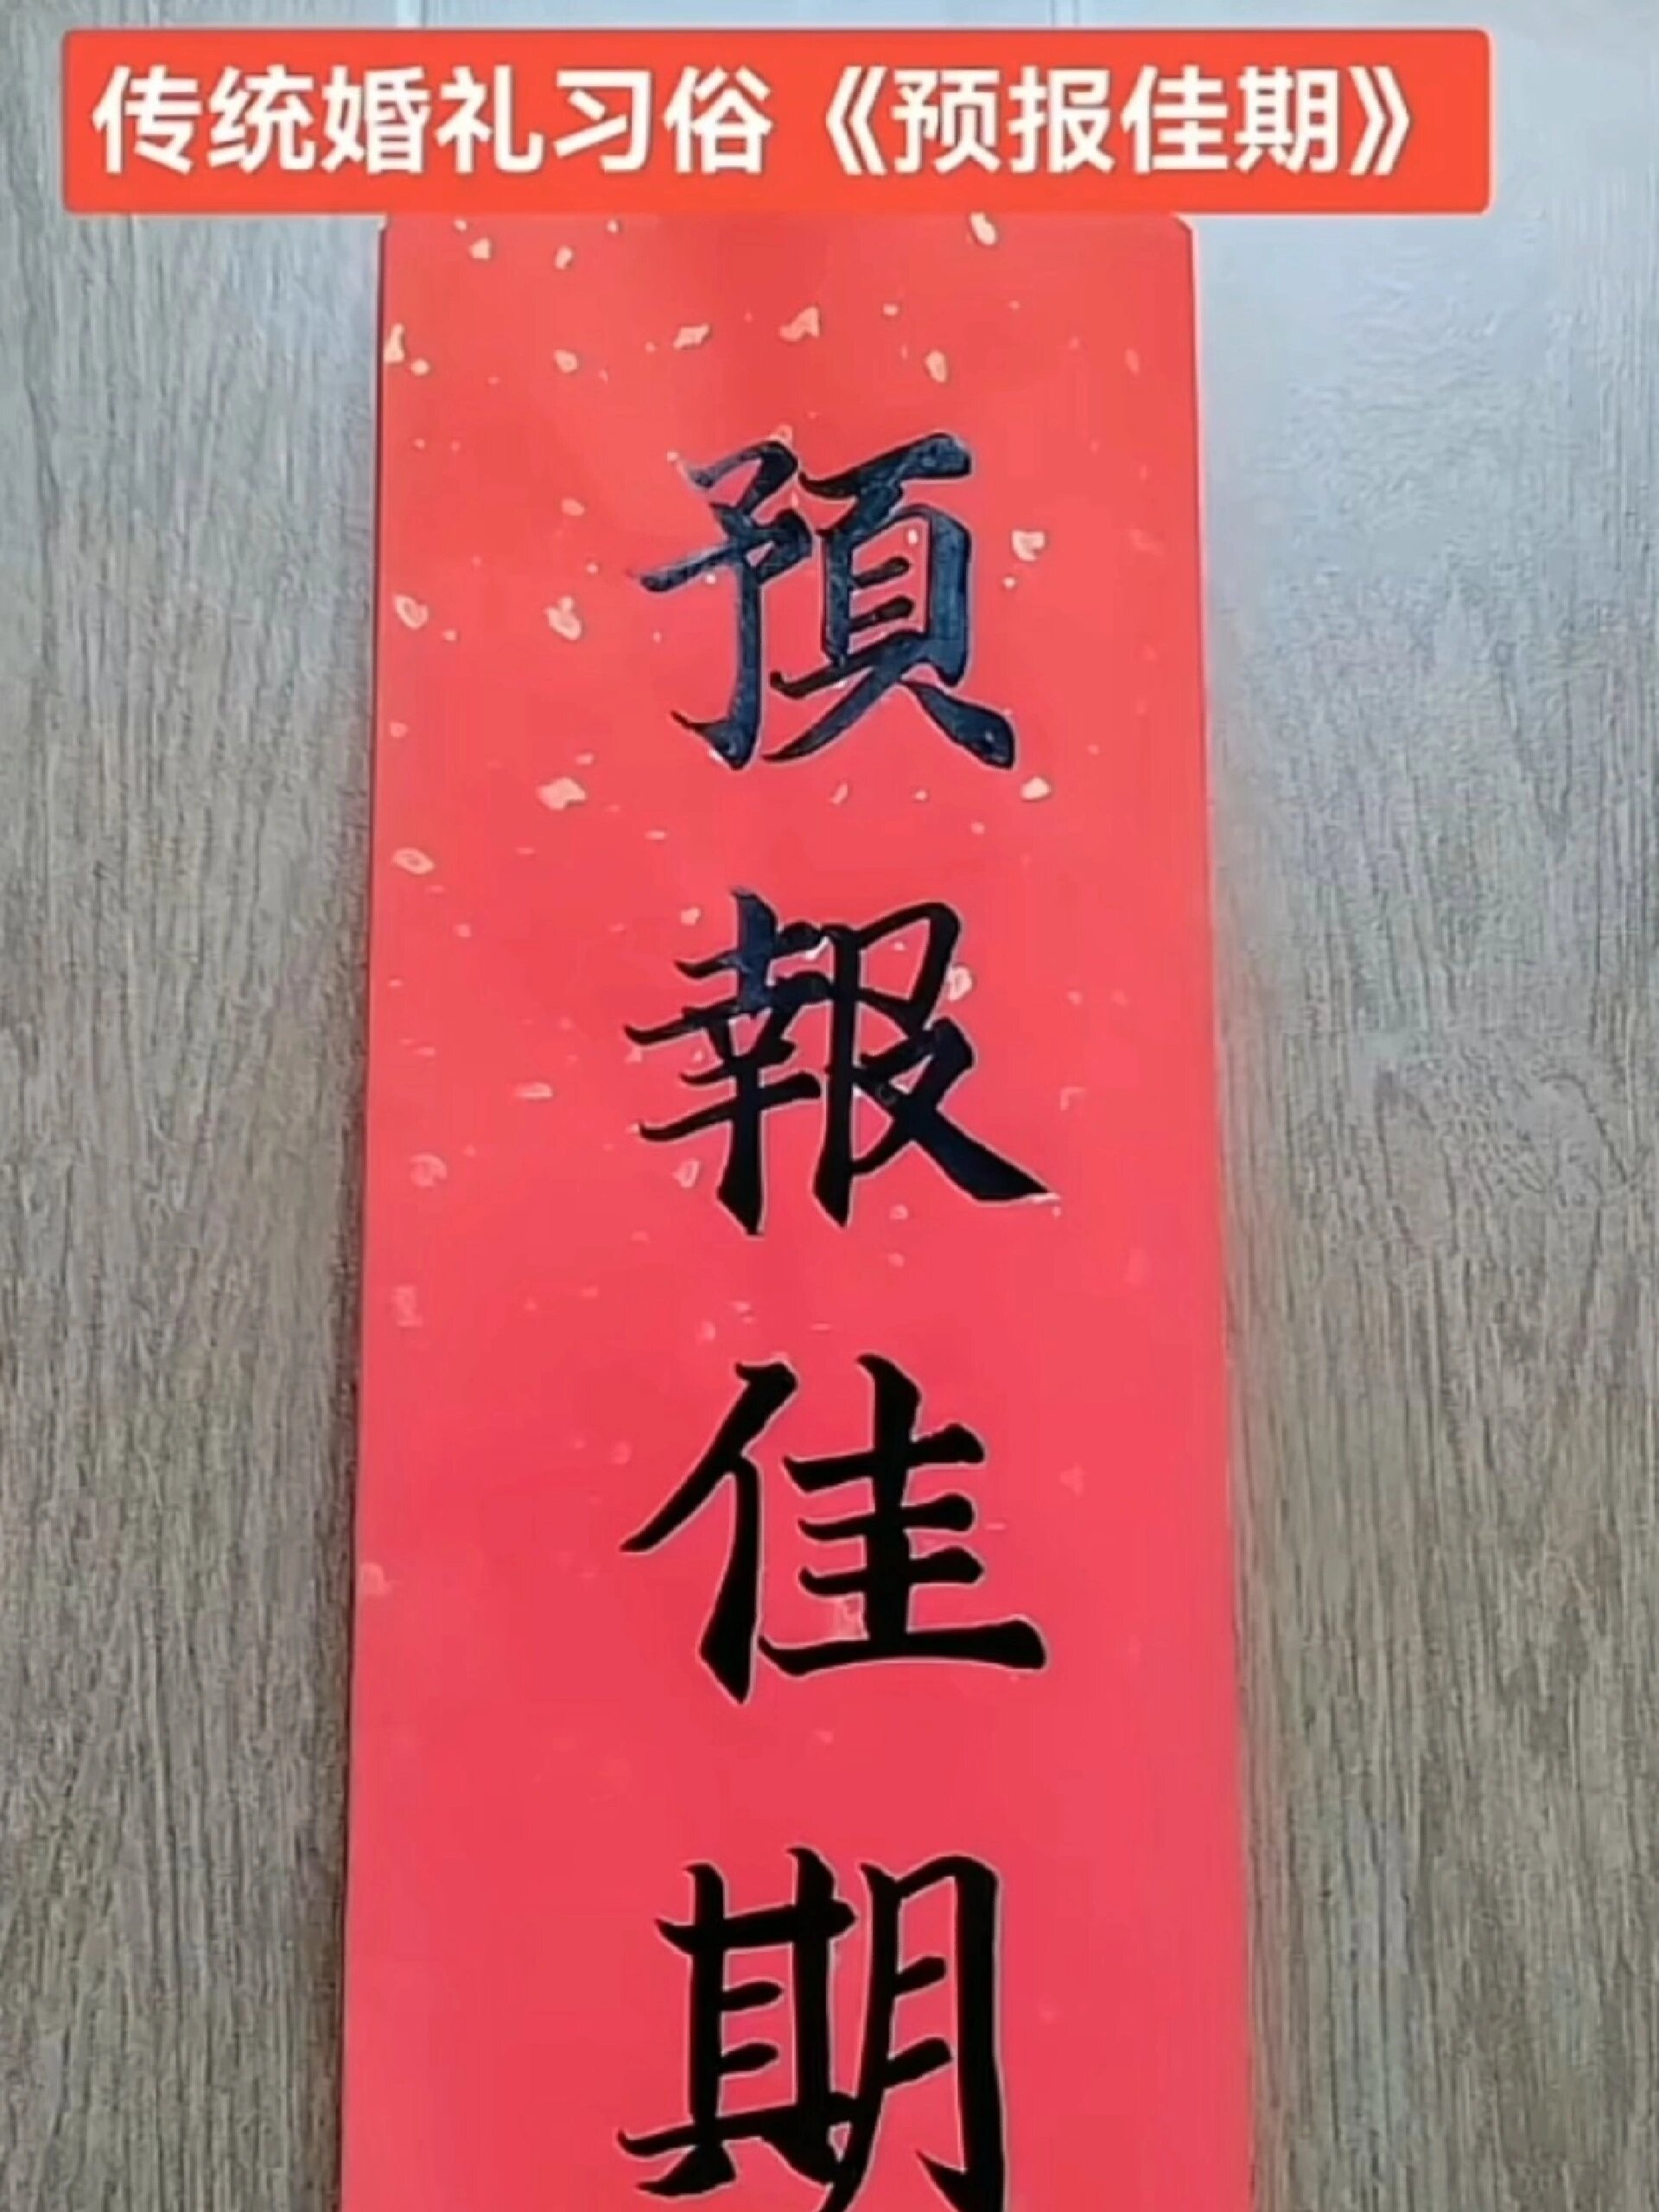 传统婚礼习俗《预报佳期》
預報佳期